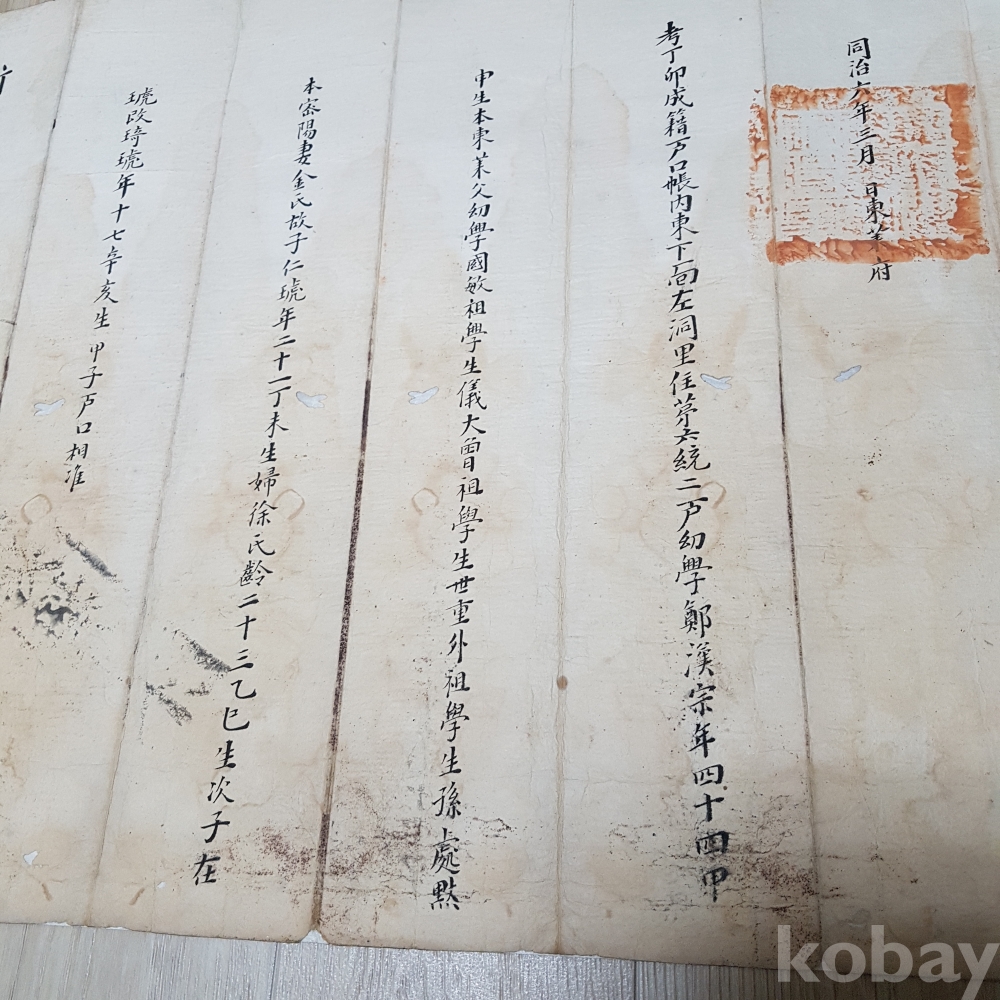 同治六年三月 日東萊府
考丁卯成籍戶口帳內東下面左洞里住苐六統二戶幼學鄭漢宗年四十四甲
申生本東萊父幼學國敏祖學生儀大曾祖學生世重外祖學生孫處點
本密陽妻金氏故子仁琥年二十一丁未生婦徐氏齡二十三乙巳生次子在
琥改琦琥年十七辛亥生甲子戶口相准
kobay